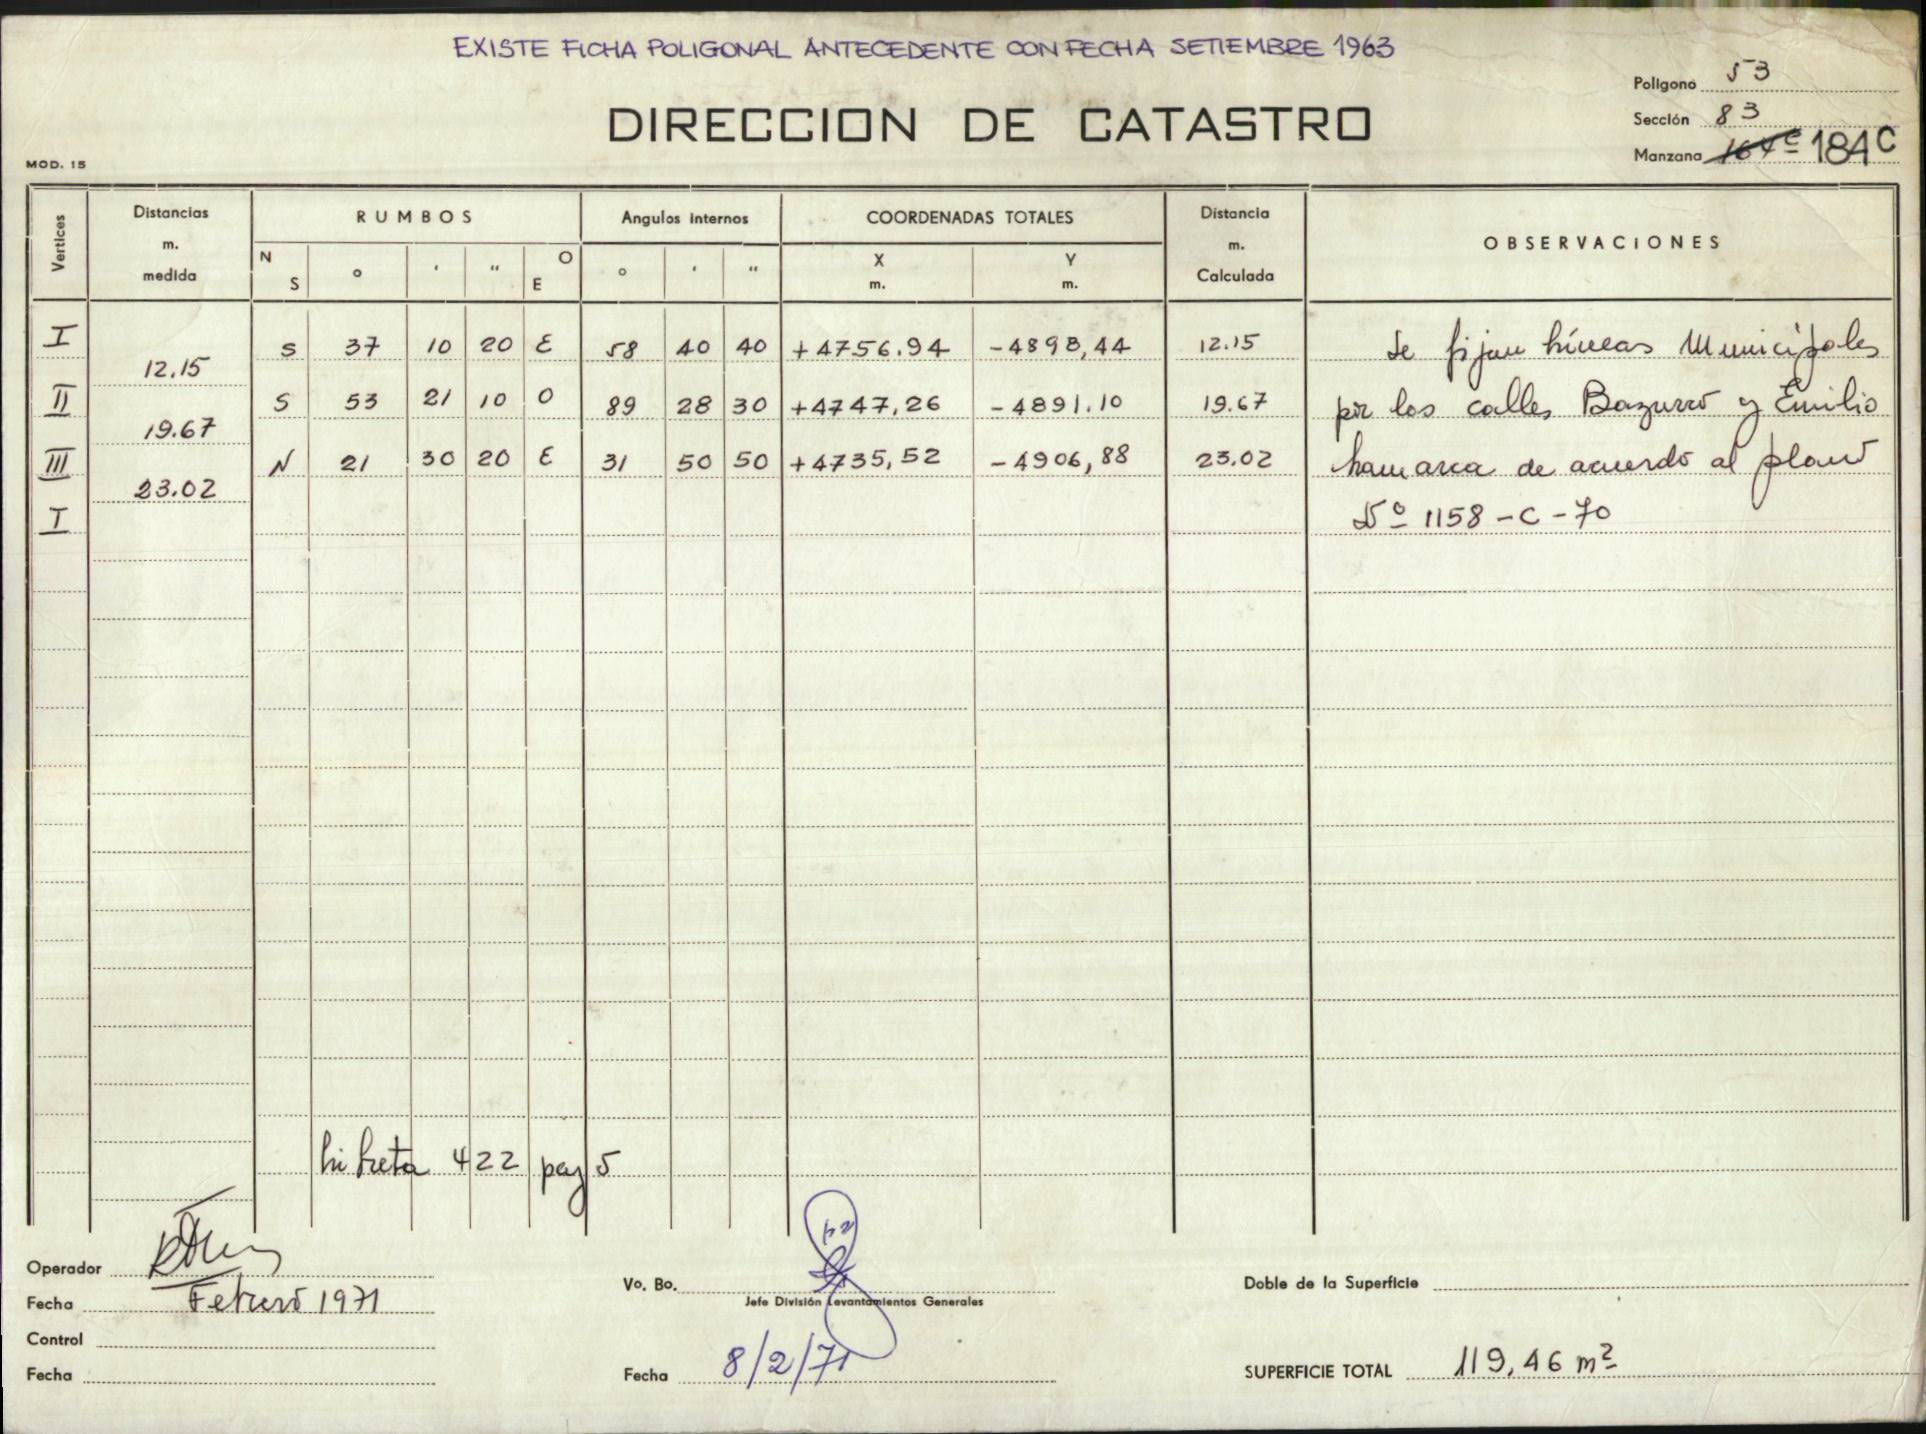 EXISTE FICHA POLIGONAL ANTECEDENTE CON FECHA SETIEMBRE 1963
DIRECCION DE CATASTRO
Polígono 53
Sección 83
Manzana 184 C
MOD. 15
Vertices Distancias m. medida RUMBOS Angulos internos COORDENADAS TOTALES Distancia m. Calculada OBSERVACIONES
N S ° ' " O E ° ' " X m. Y m.
I S 37 10 20 E 58 40 40 +4756.94 -4898,44 12.15 Se fijan Líneas Municipales
12.15
II S 53 21 10 O 89 28 30 +4747,26 -4891.10 19.67 por las calles Bazurro y Emilio
19.67
III N 21 30 20 E 31 50 50 +4735,52 -4906,88 23.02 Lamarca de acuerdo al plano
23.02
I Nº 1158-C-70
Libreta 422 pag 5
Operador
Fecha Febrero 1971
Control
Fecha
Vo. Bo.
Jefe División Levantamientos Generales
Fecha 8/2/71
Doble de la Superficie
SUPERFICIE TOTAL 119,46 m²